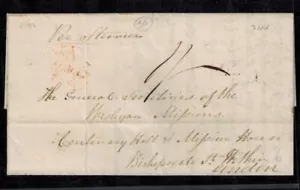 Per Steamer
1/
The General Secretaries of the
Wesleyan Missions
Centenary Hall & Mission House
Bishopsgate St. Within
London